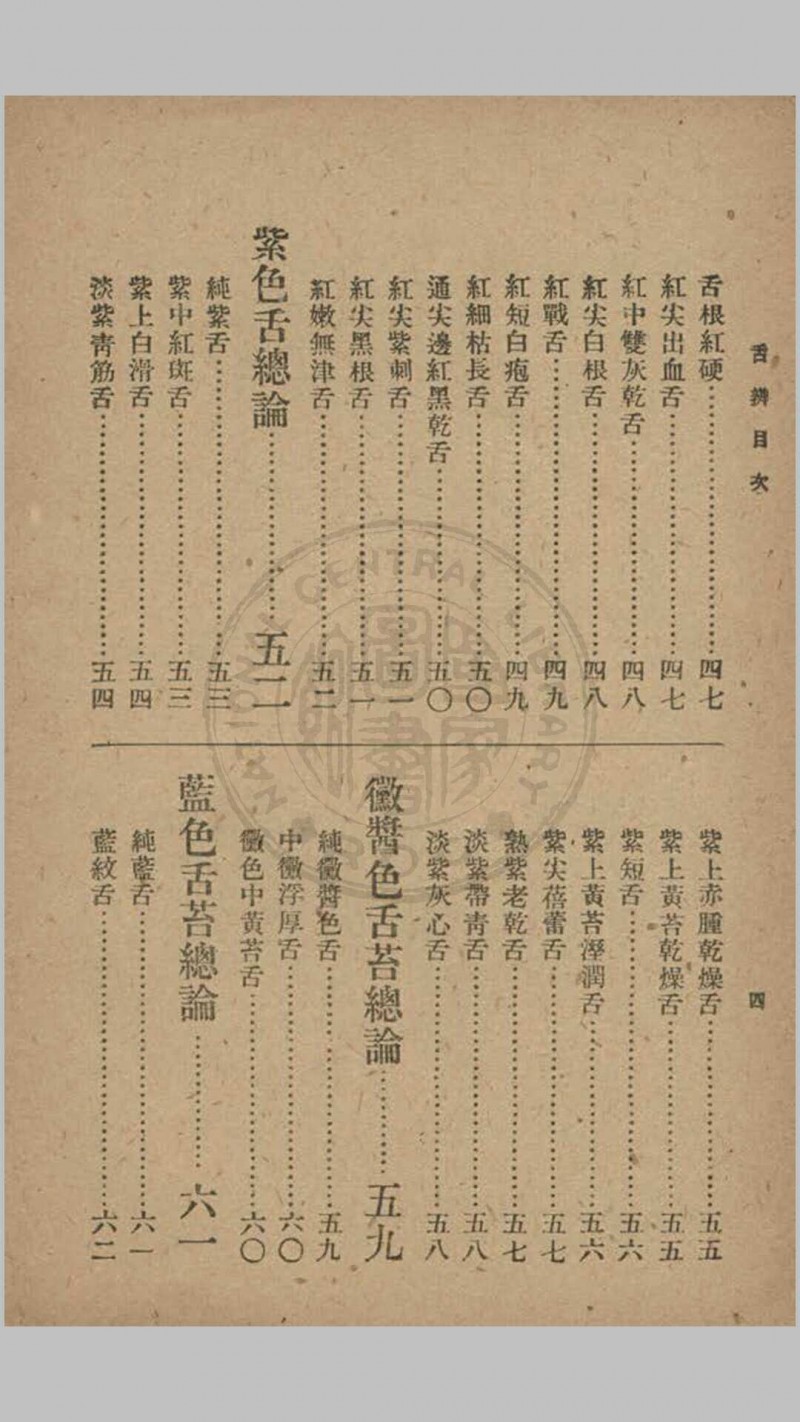 舌辨目次
四
舌根紅硬……四七
紅尖出血舌……四七
紅中雙灰乾舌……四八
紅尖白根舌……四八
紅戰舌……四九
紅短白疱舌……四九
紅細枯長舌……五〇
通尖邊紅黑乾舌……五〇
紅尖紫刺舌……五一
紅尖黑根舌……五一
紅嫩無津舌……五二
紫色舌總論……五二
純紫舌……五三
紫中紅斑舌……五三
紫上白滑舌……五四
淡紫靑筋舌……五四
紫上赤腫乾燥舌……五五
紫上黃苔乾燥舌……五五
紫短舌……五六
紫上黃苔溼潤舌……五六
紫尖蓓蕾舌……五七
熟紫老乾舌……五七
淡紫帶靑舌……五八
淡紫灰心舌……五八
黴醬色舌苔總論……五九
純黴醬色舌……五九
中黴浮厚舌……六〇
黴色中黃苔舌……六〇
藍色舌苔總論……六一
純藍舌……六一
藍紋舌……六二